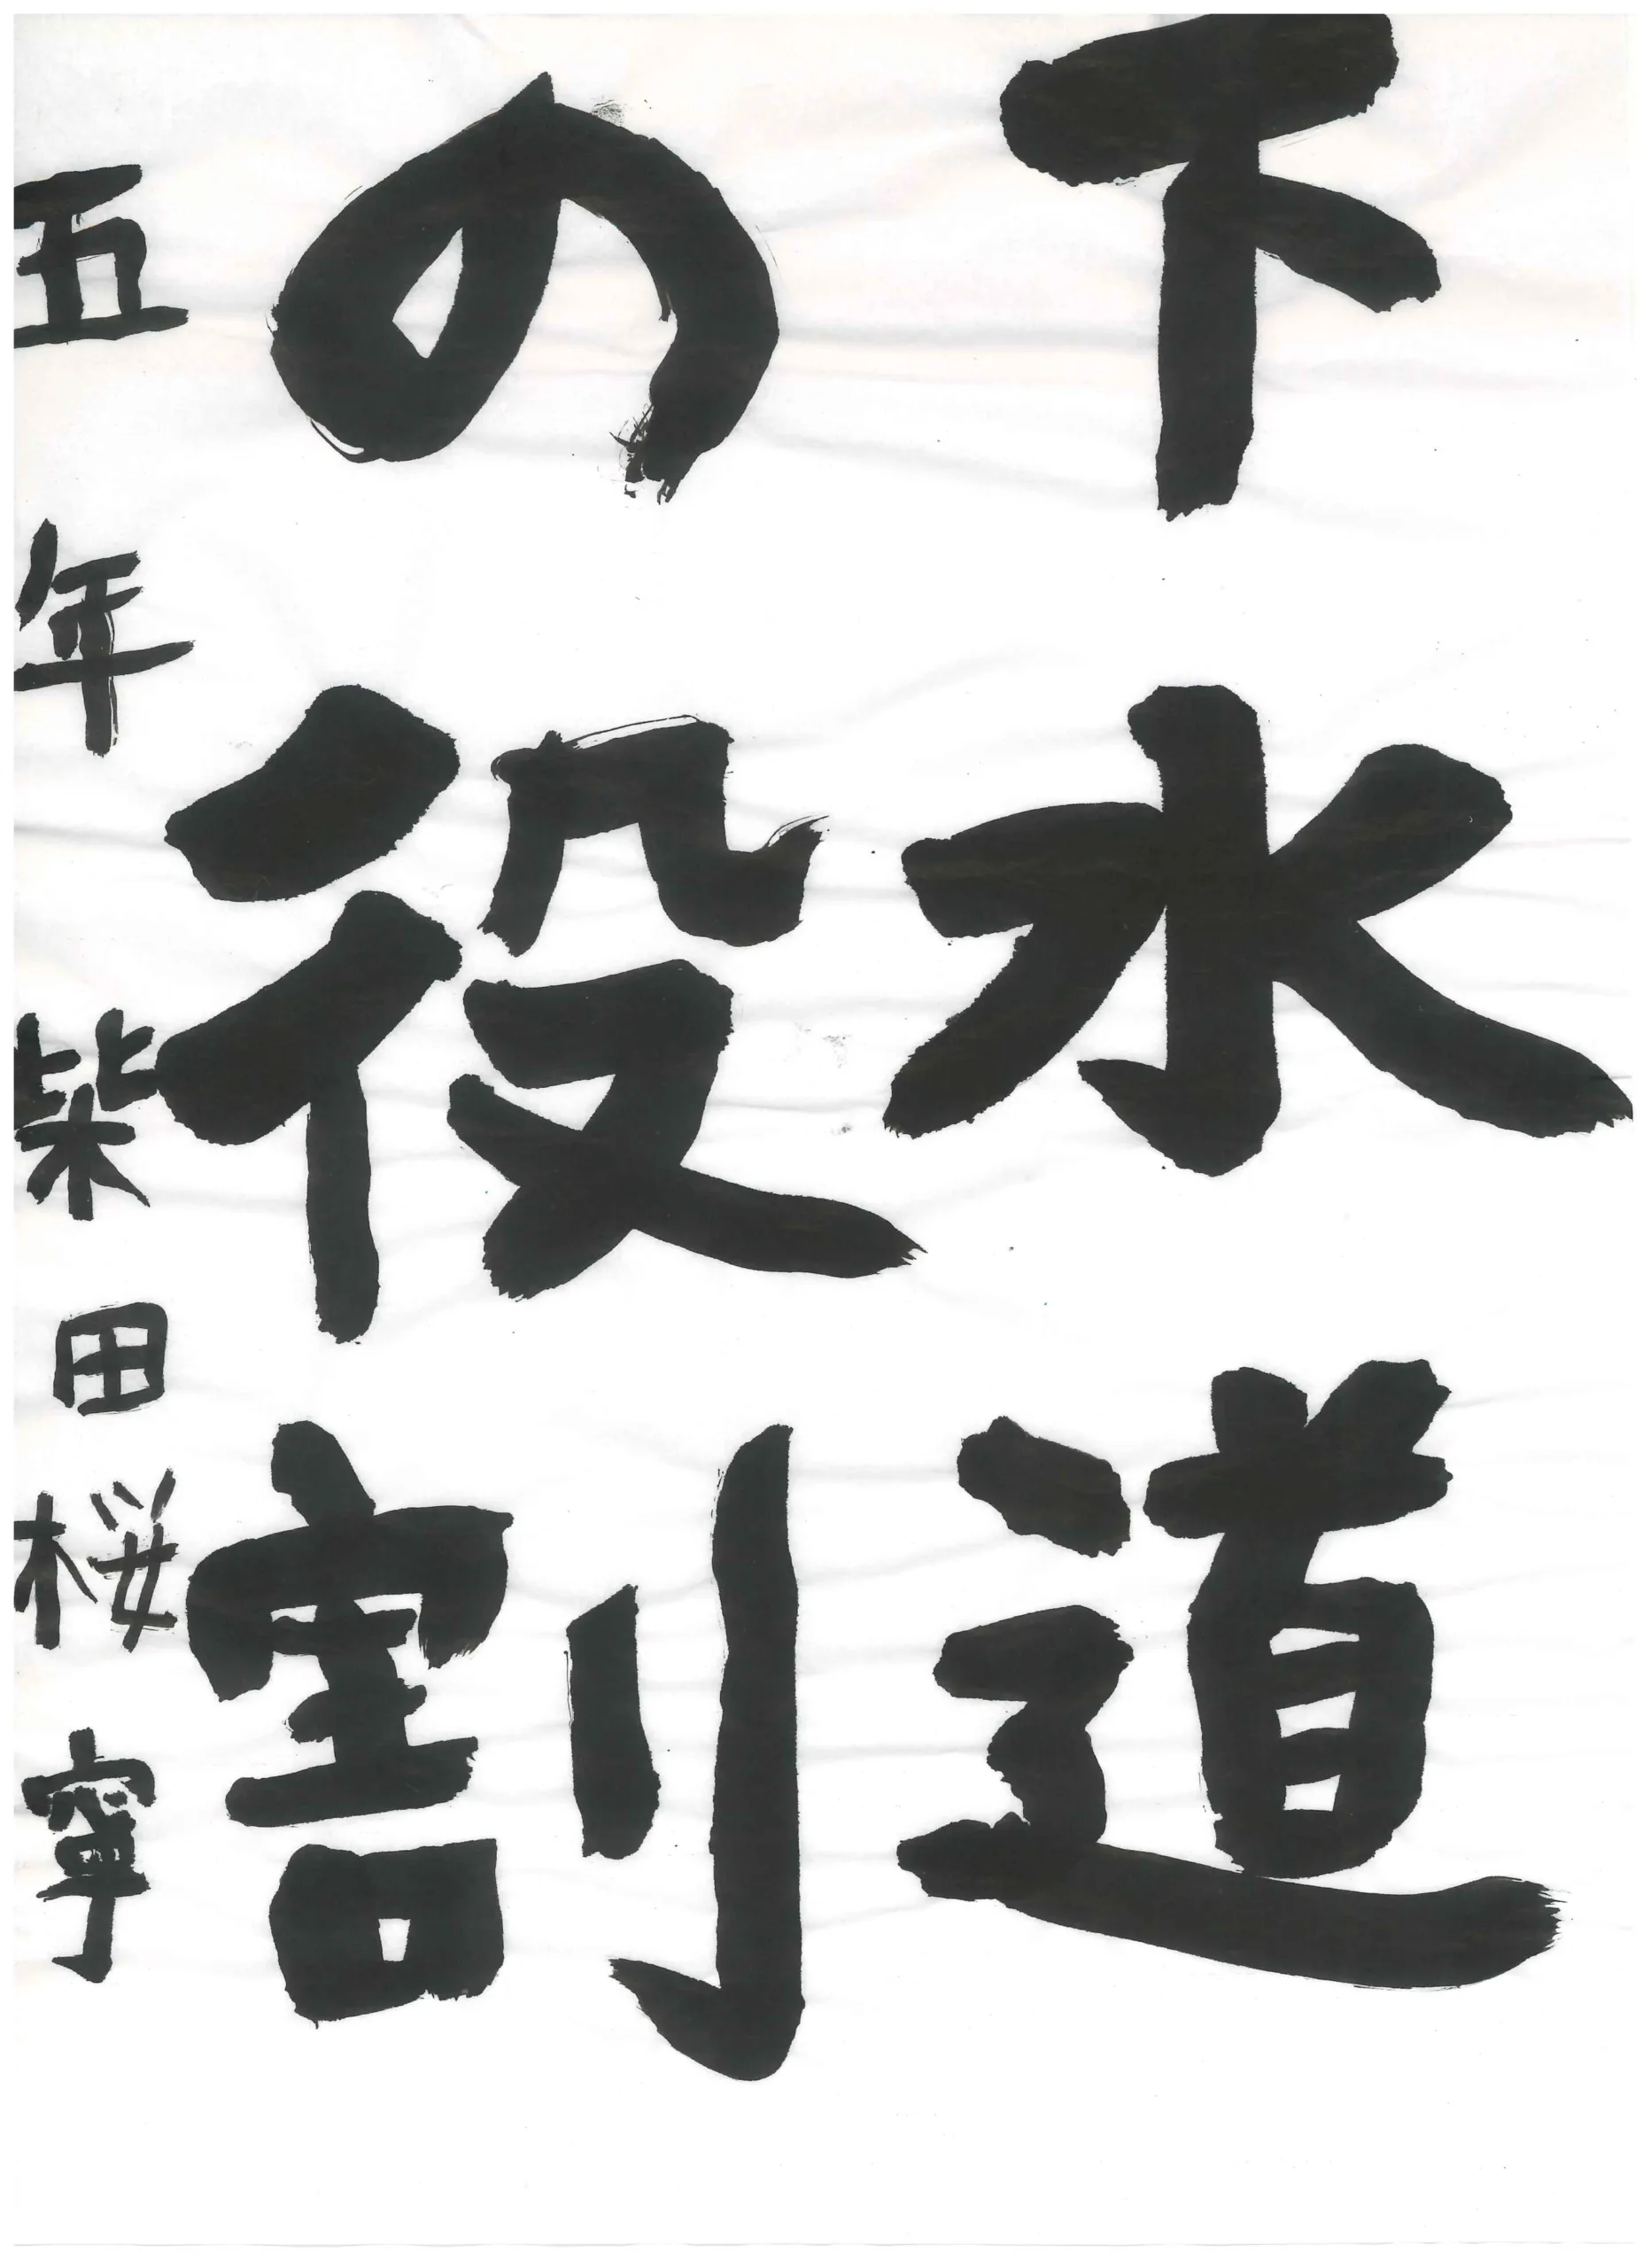 下水道
の役割
五年 柴田桜寧